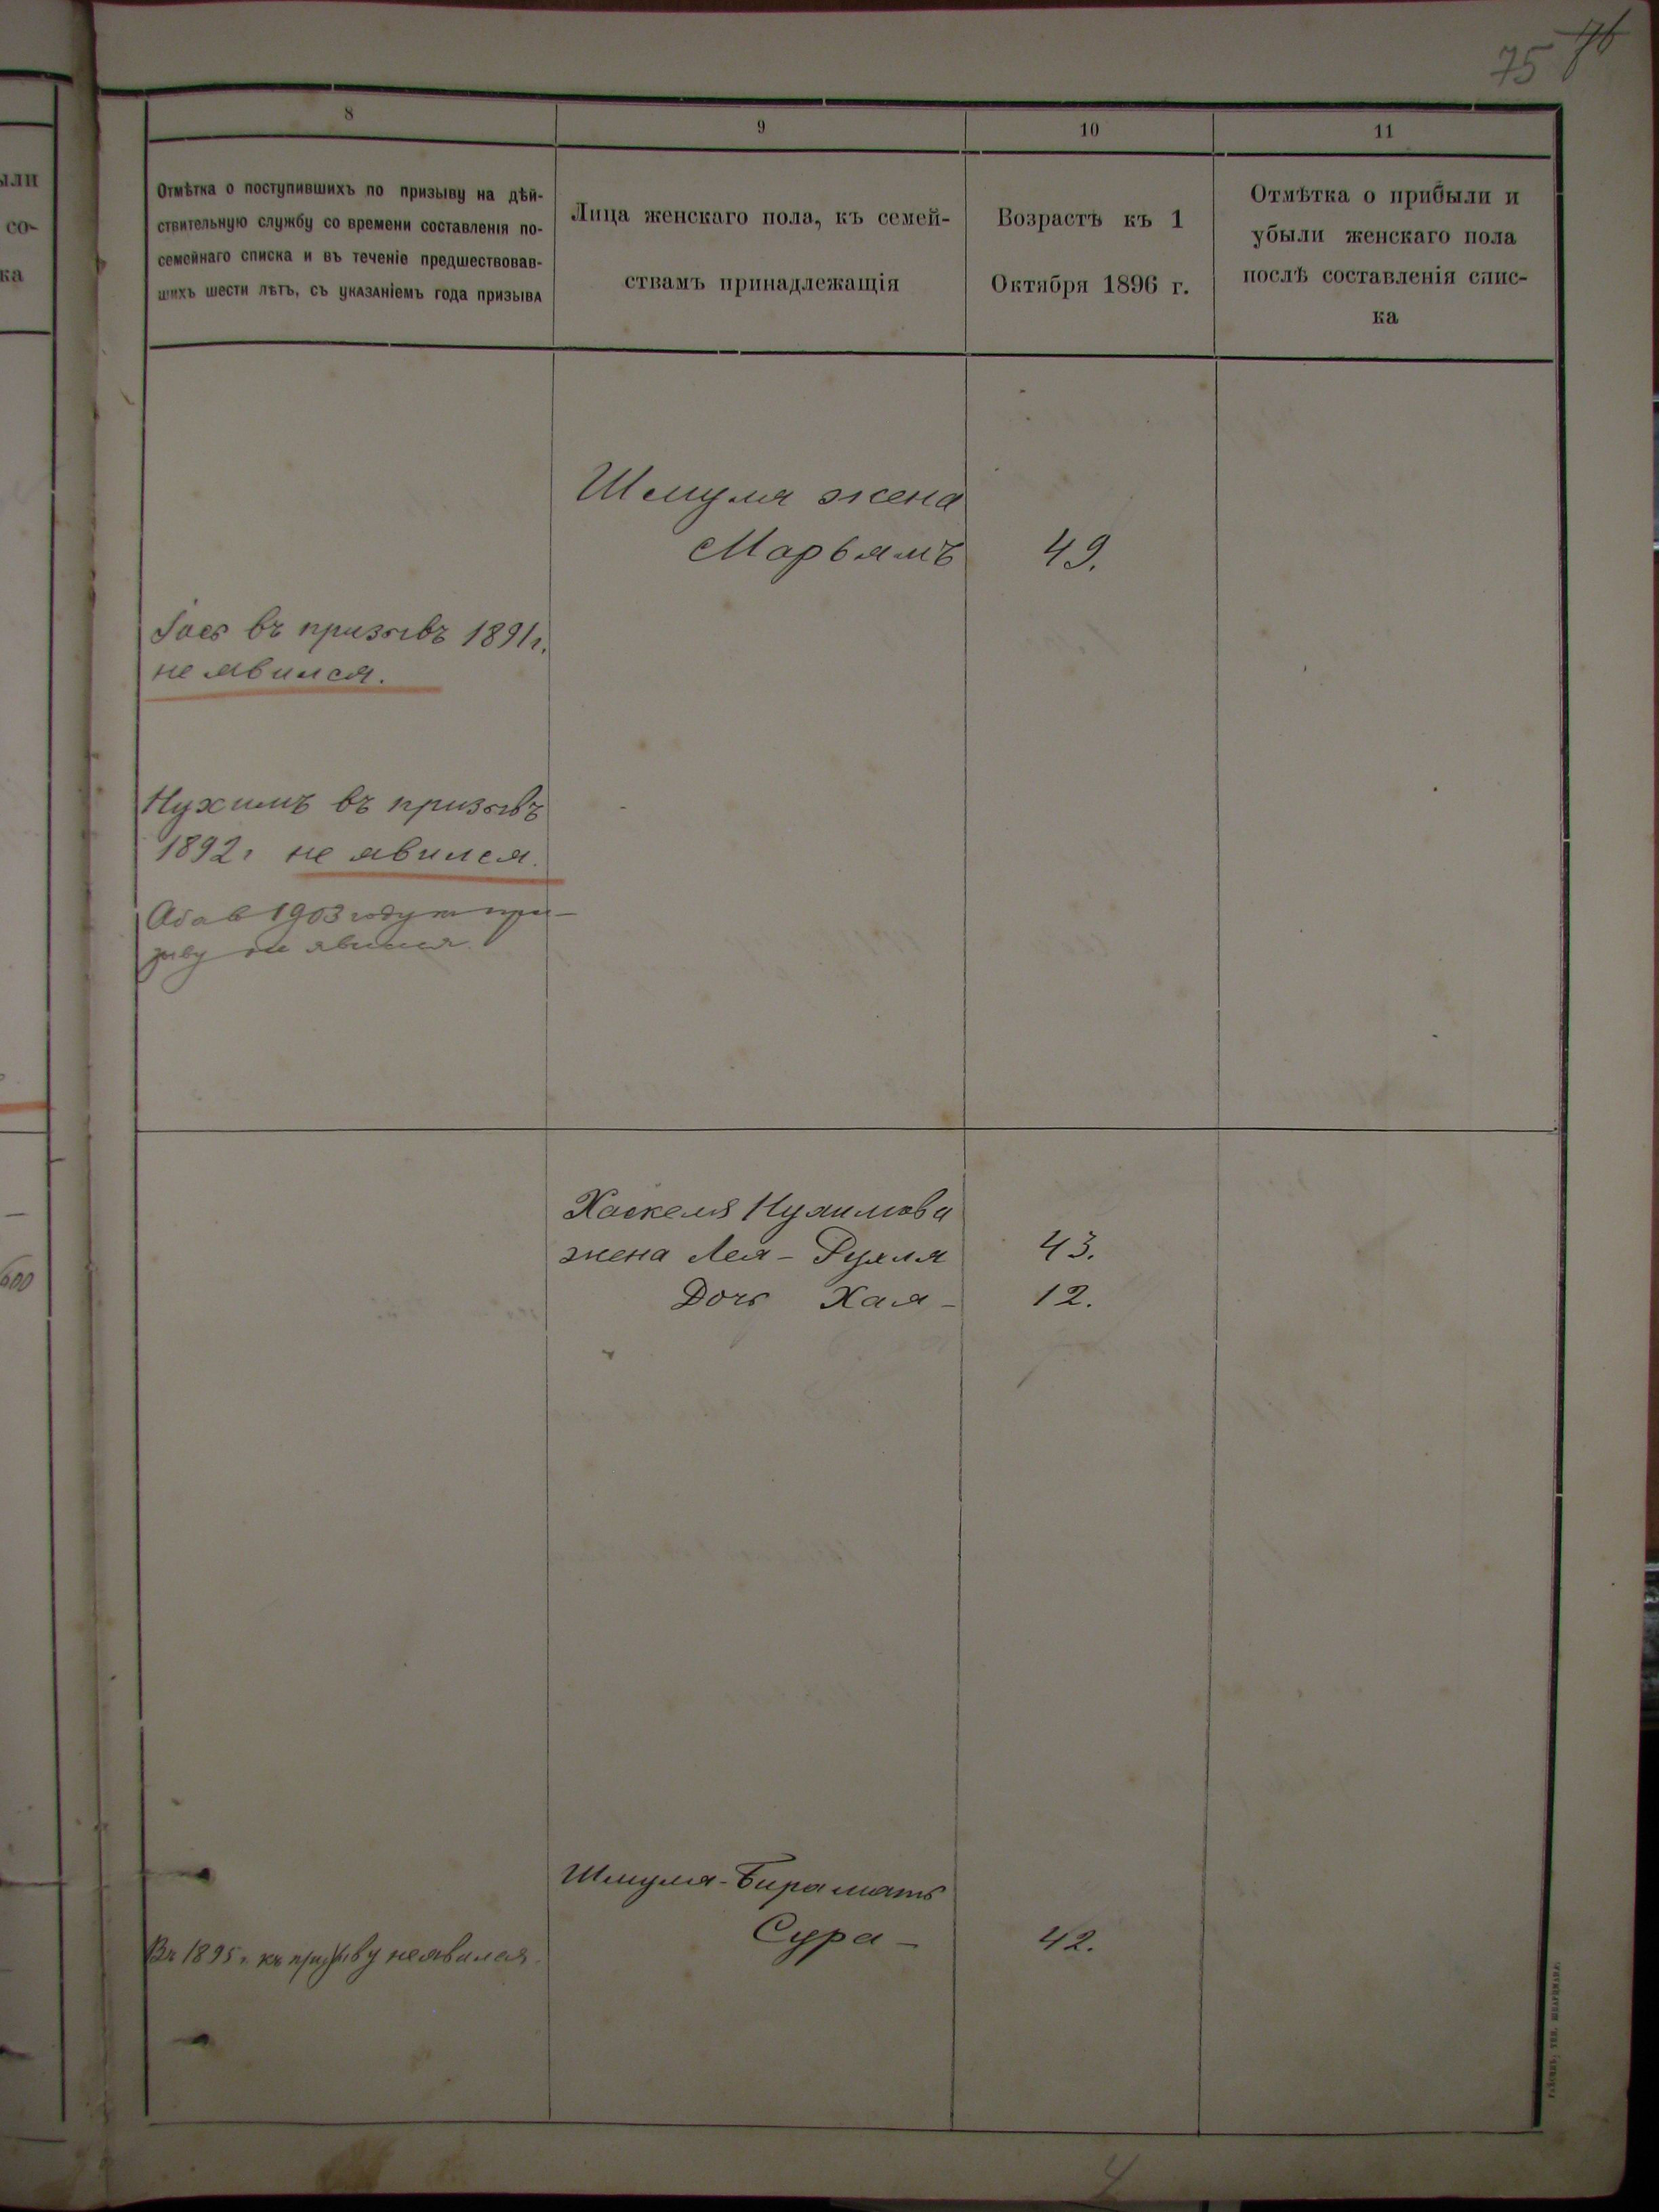 75 76
8
9
10
11
Отмѣтка о поступившихъ по призыву на дѣй-
ствительную службу со времени составленія по-
семейнаго списка и въ теченіе предшествовав-
шихъ шести лѣтъ, съ указаніемъ года призыва
Лица женскаго пола, къ семей-
ствамъ принадлежащія
Возрастъ къ 1
Октября 1896 г.
Отмѣтка о прибыли и
убыли женскаго пола
послѣ составленія спис-
ка
ыли
со-
ка
Шмуля жена
Марьямъ 49.
Іось въ призывъ 1891 г.
не явился.
Нухимъ въ призывъ
1892 г не явился.
Аба в 1903 году к при-
зыву не явился.
Хаскеля Нухимова
жена Лея - Рухля 43.
Дочь Хая - 12.
Шмуля-Бера мать
Сура - 42.
Въ 1895 г. къ призыву не явился.